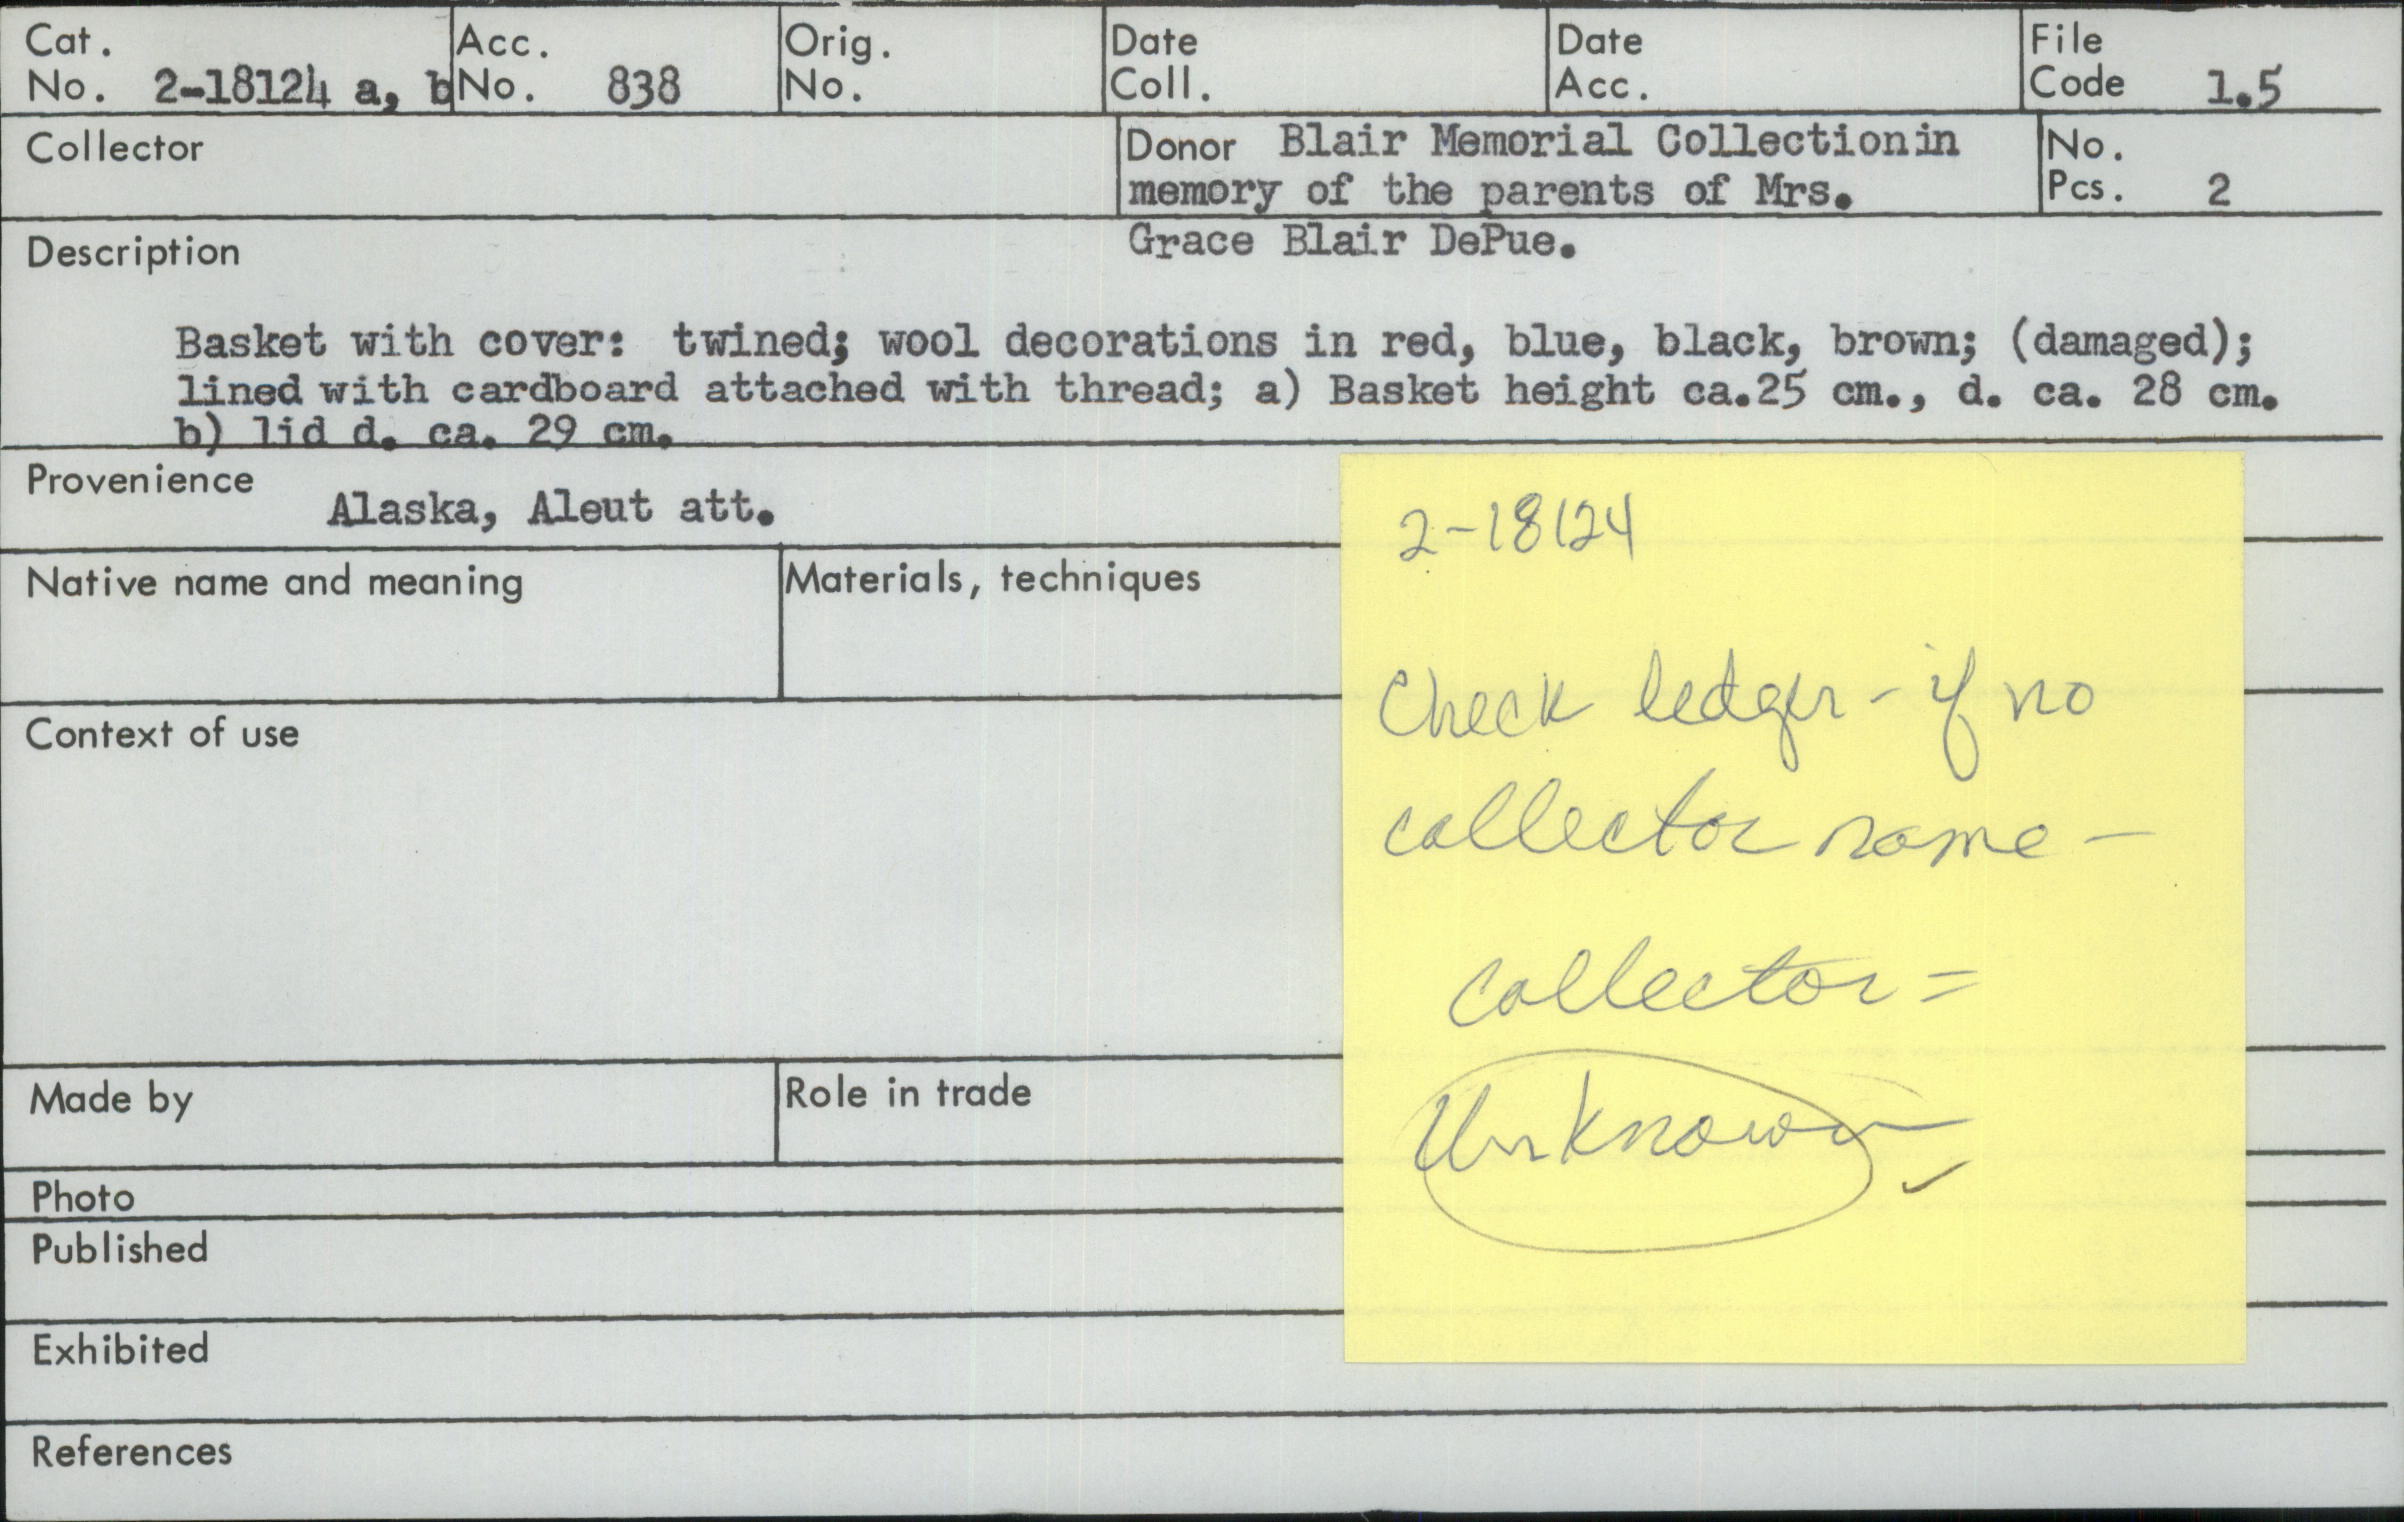 Cat. No. 2-18124 a, b
Acc. No. 838
Orig. No.
Date Coll.
Date Acc.
File Code 1.5
Collector
Donor Blair Memorial Collectionin
memory of the parents of Mrs.
Grace Blair DePue.
No. Pcs. 2
Description
Basket with cover: twined; wool decorations in red, blue, black, brown; (damaged);
lined with cardboard attached with thread; a) Basket height ca.25 cm., d. ca. 28 cm.
b) lid d. ca. 29 cm.
Provenience
Alaska, Aleut att.
Native name and meaning
Materials, techniques
Context of use
Made by
Role in trade
Photo
Published
Exhibited
References
2-18124
Check ledger - if no
collector name -
collector =
Unknown ✓